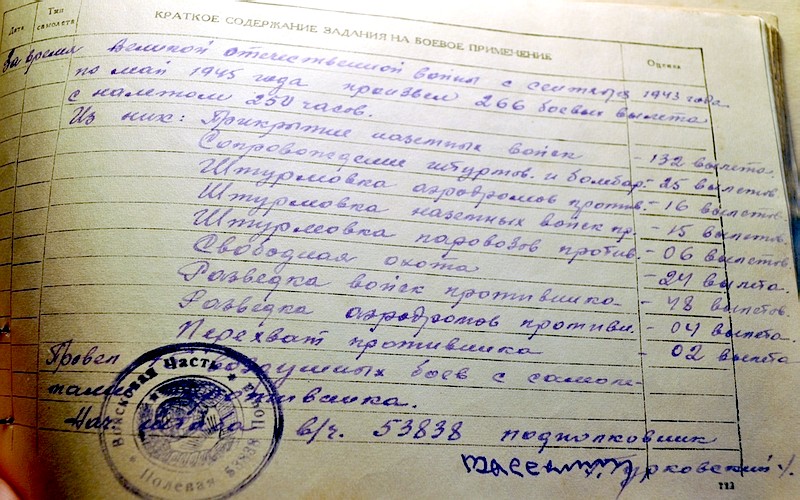 Дата
Тип самолета
КРАТКОЕ СОДЕРЖАНИЕ ЗАДАНИЯ НА БОЕВОЕ ПРИМЕНЕНИЕ
Оценка
За время Великой отечественной войны с сентября 1943 года
по май 1945 года произвел 266 боевых вылета
с налетом 250 часов.
Из них: Прикрытие наземных войск - 132 вылета.
Сопровождение штурмов. и бомбар. - 25 вылетов
Штурмовка аэродромов против. - 16 вылетов
Штурмовка наземных войск пр. - 15 вылетов.
Штурмовка паровозов против - 06 вылетов
Свободная охота - 24 вылета.
Разведка войск противника - 48 вылетов.
Разведка аэродромов противн. - 04 вылета.
Перехват противника - 02 вылета
Провел воздушных боев с самоле-
тами противника.
Нач. штаба в/ч. 53838 подполковник
Турковский
Войсковая Часть
Полевая Почта 53838